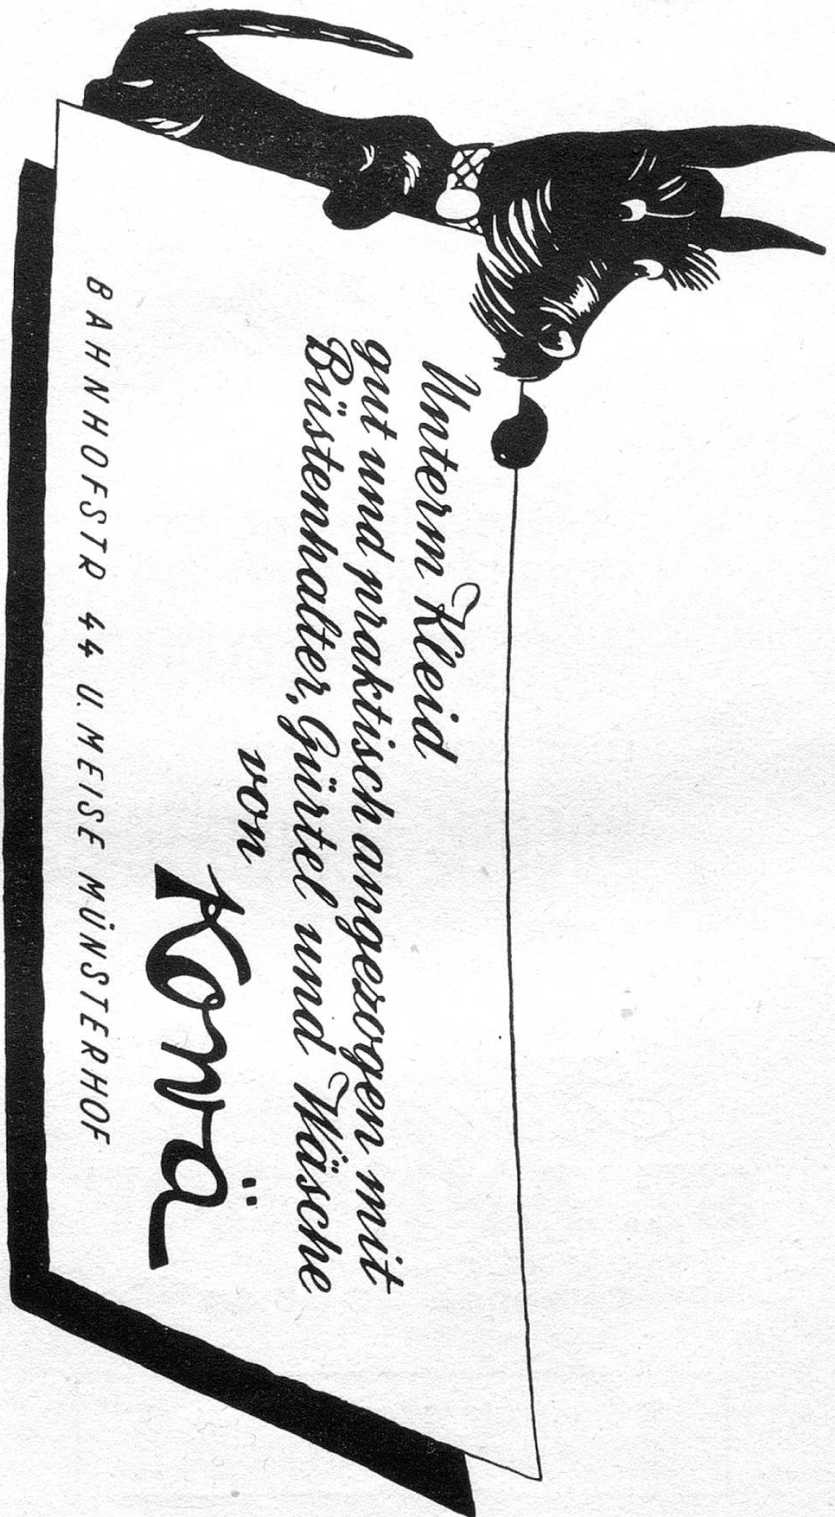 Unterm Kleid
gut und praktisch angezogen mit
Büstenhalter, Gürtel und Wäsche
von
Kowä
BAHNHOFSTR 44 U. MEISE MÜNSTERHOF